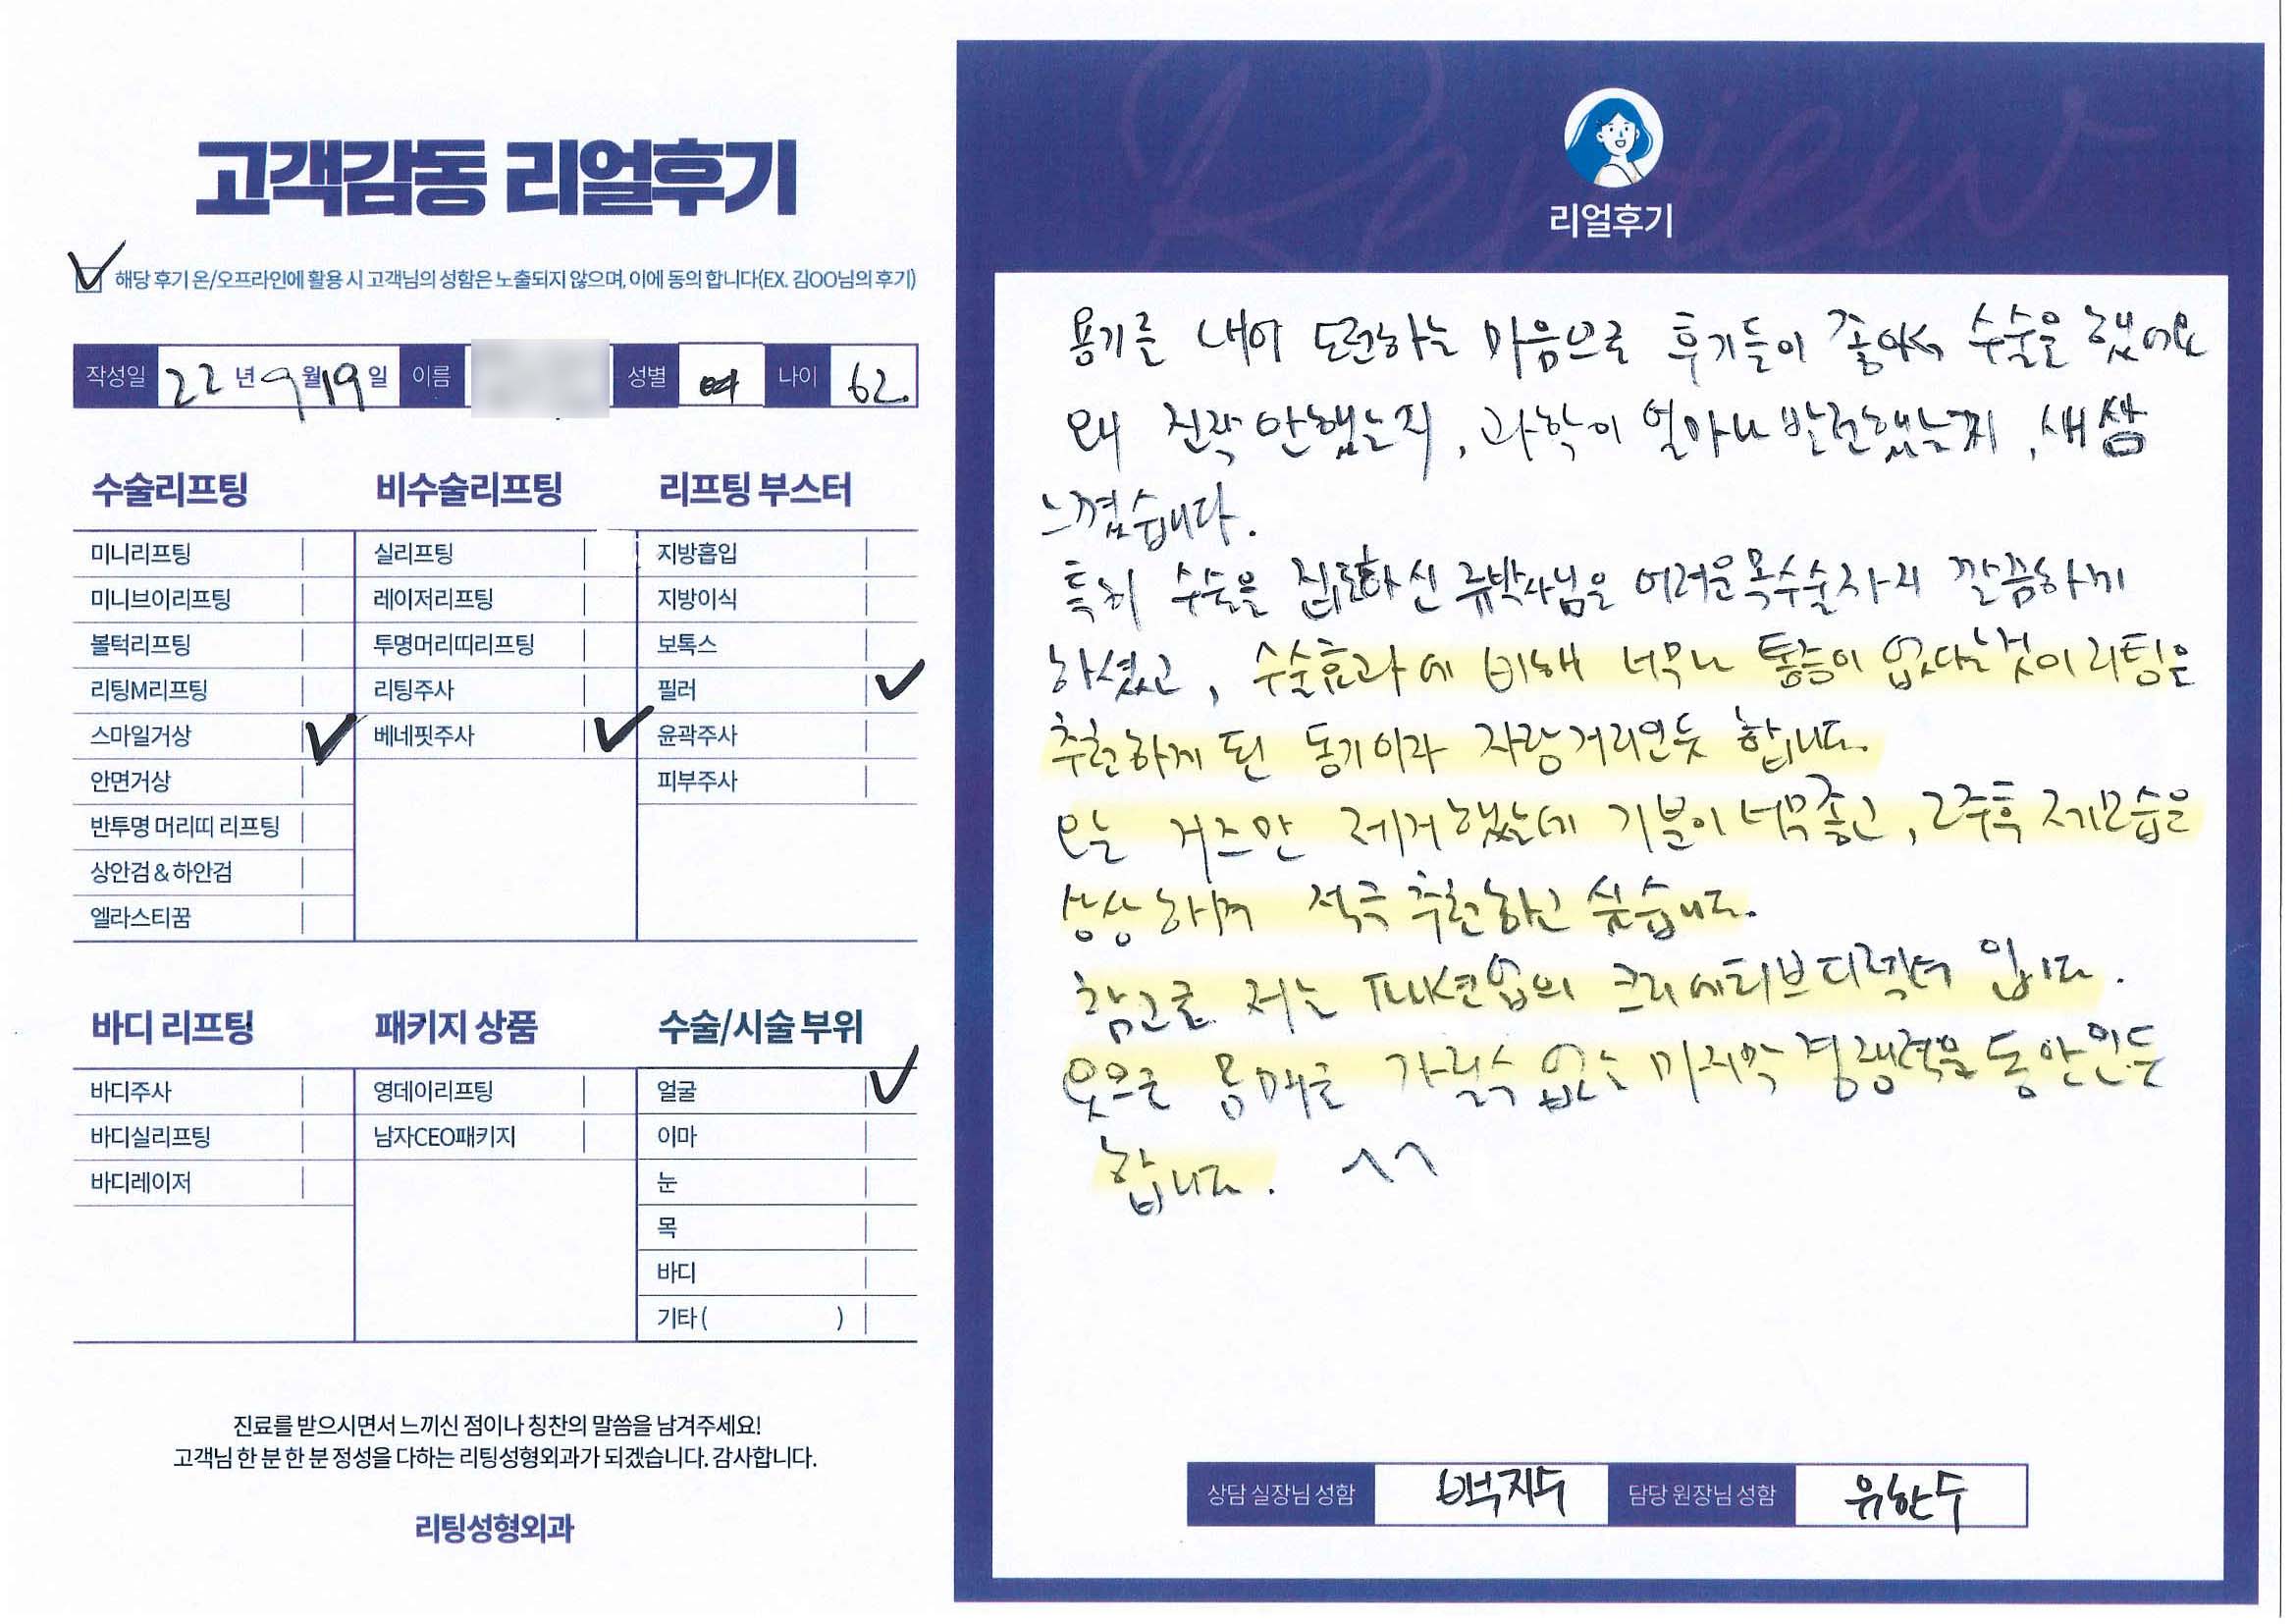 고객감동 리얼후기
해당 후기 온/오프라인에 활용 시 고객님의 성함은 노출되지 않으며, 이에 동의 합니다(EX. 김OO님의 후기)
작성일 22년 9월 19일 이름 성별 여 나이 62.
수술리프팅
미니리프팅
미니브이리프팅
볼턱리프팅
리팅M리프팅
스마일거상
안면거상
반투명 머리띠 리프팅
상안검 & 하안검
엘라스티꿈
비수술리프팅
실리프팅
레이저리프팅
투명머리띠리프팅
리팅주사
베네핏주사
리프팅 부스터
지방흡입
지방이식
보톡스
필러
윤곽주사
피부주사
바디 리프팅
바디주사
바디실리프팅
바디레이저
패키지 상품
영데이리프팅
남자CEO패키지
수술/시술 부위
얼굴
이마
눈
목
바디
기타 ( )
진료를 받으시면서 느끼신 점이나 칭찬의 말씀을 남겨주세요!
고객님 한 분 한 분 정성을 다하는 리팅성형외과가 되겠습니다. 감사합니다.
리팅성형외과
Review
리얼후기
용기를 내어 도전하는 마음으로 후기들이 좋아서 수술을 했어요
왜 진작 안했는지, 과학이 얼마나 발전했는지, 새삼
느꼈습니다.
특히 수술을 집도하신 류박사님은 어려운 목수술까지 깔끔하게
하셨고, 수술효과에 비해 너무나 통증이 없다는것이 리팅을
추천하게 된 동기이라 자랑거리인듯 합니다.
오늘 거즈만 제거했는데 기분이 너무좋고, 2주후 제모습을
상상하며 적극 추천하고 싶습니다.
참고로 저는 패션업의 크리에티브디렉터 입니다.
옷으로 몸매로 가릴수 없는 마지막 경쟁력은 동안인듯
합니다. ^^
상담 실장님 성함 백지수 담당 원장님 성함 유한수